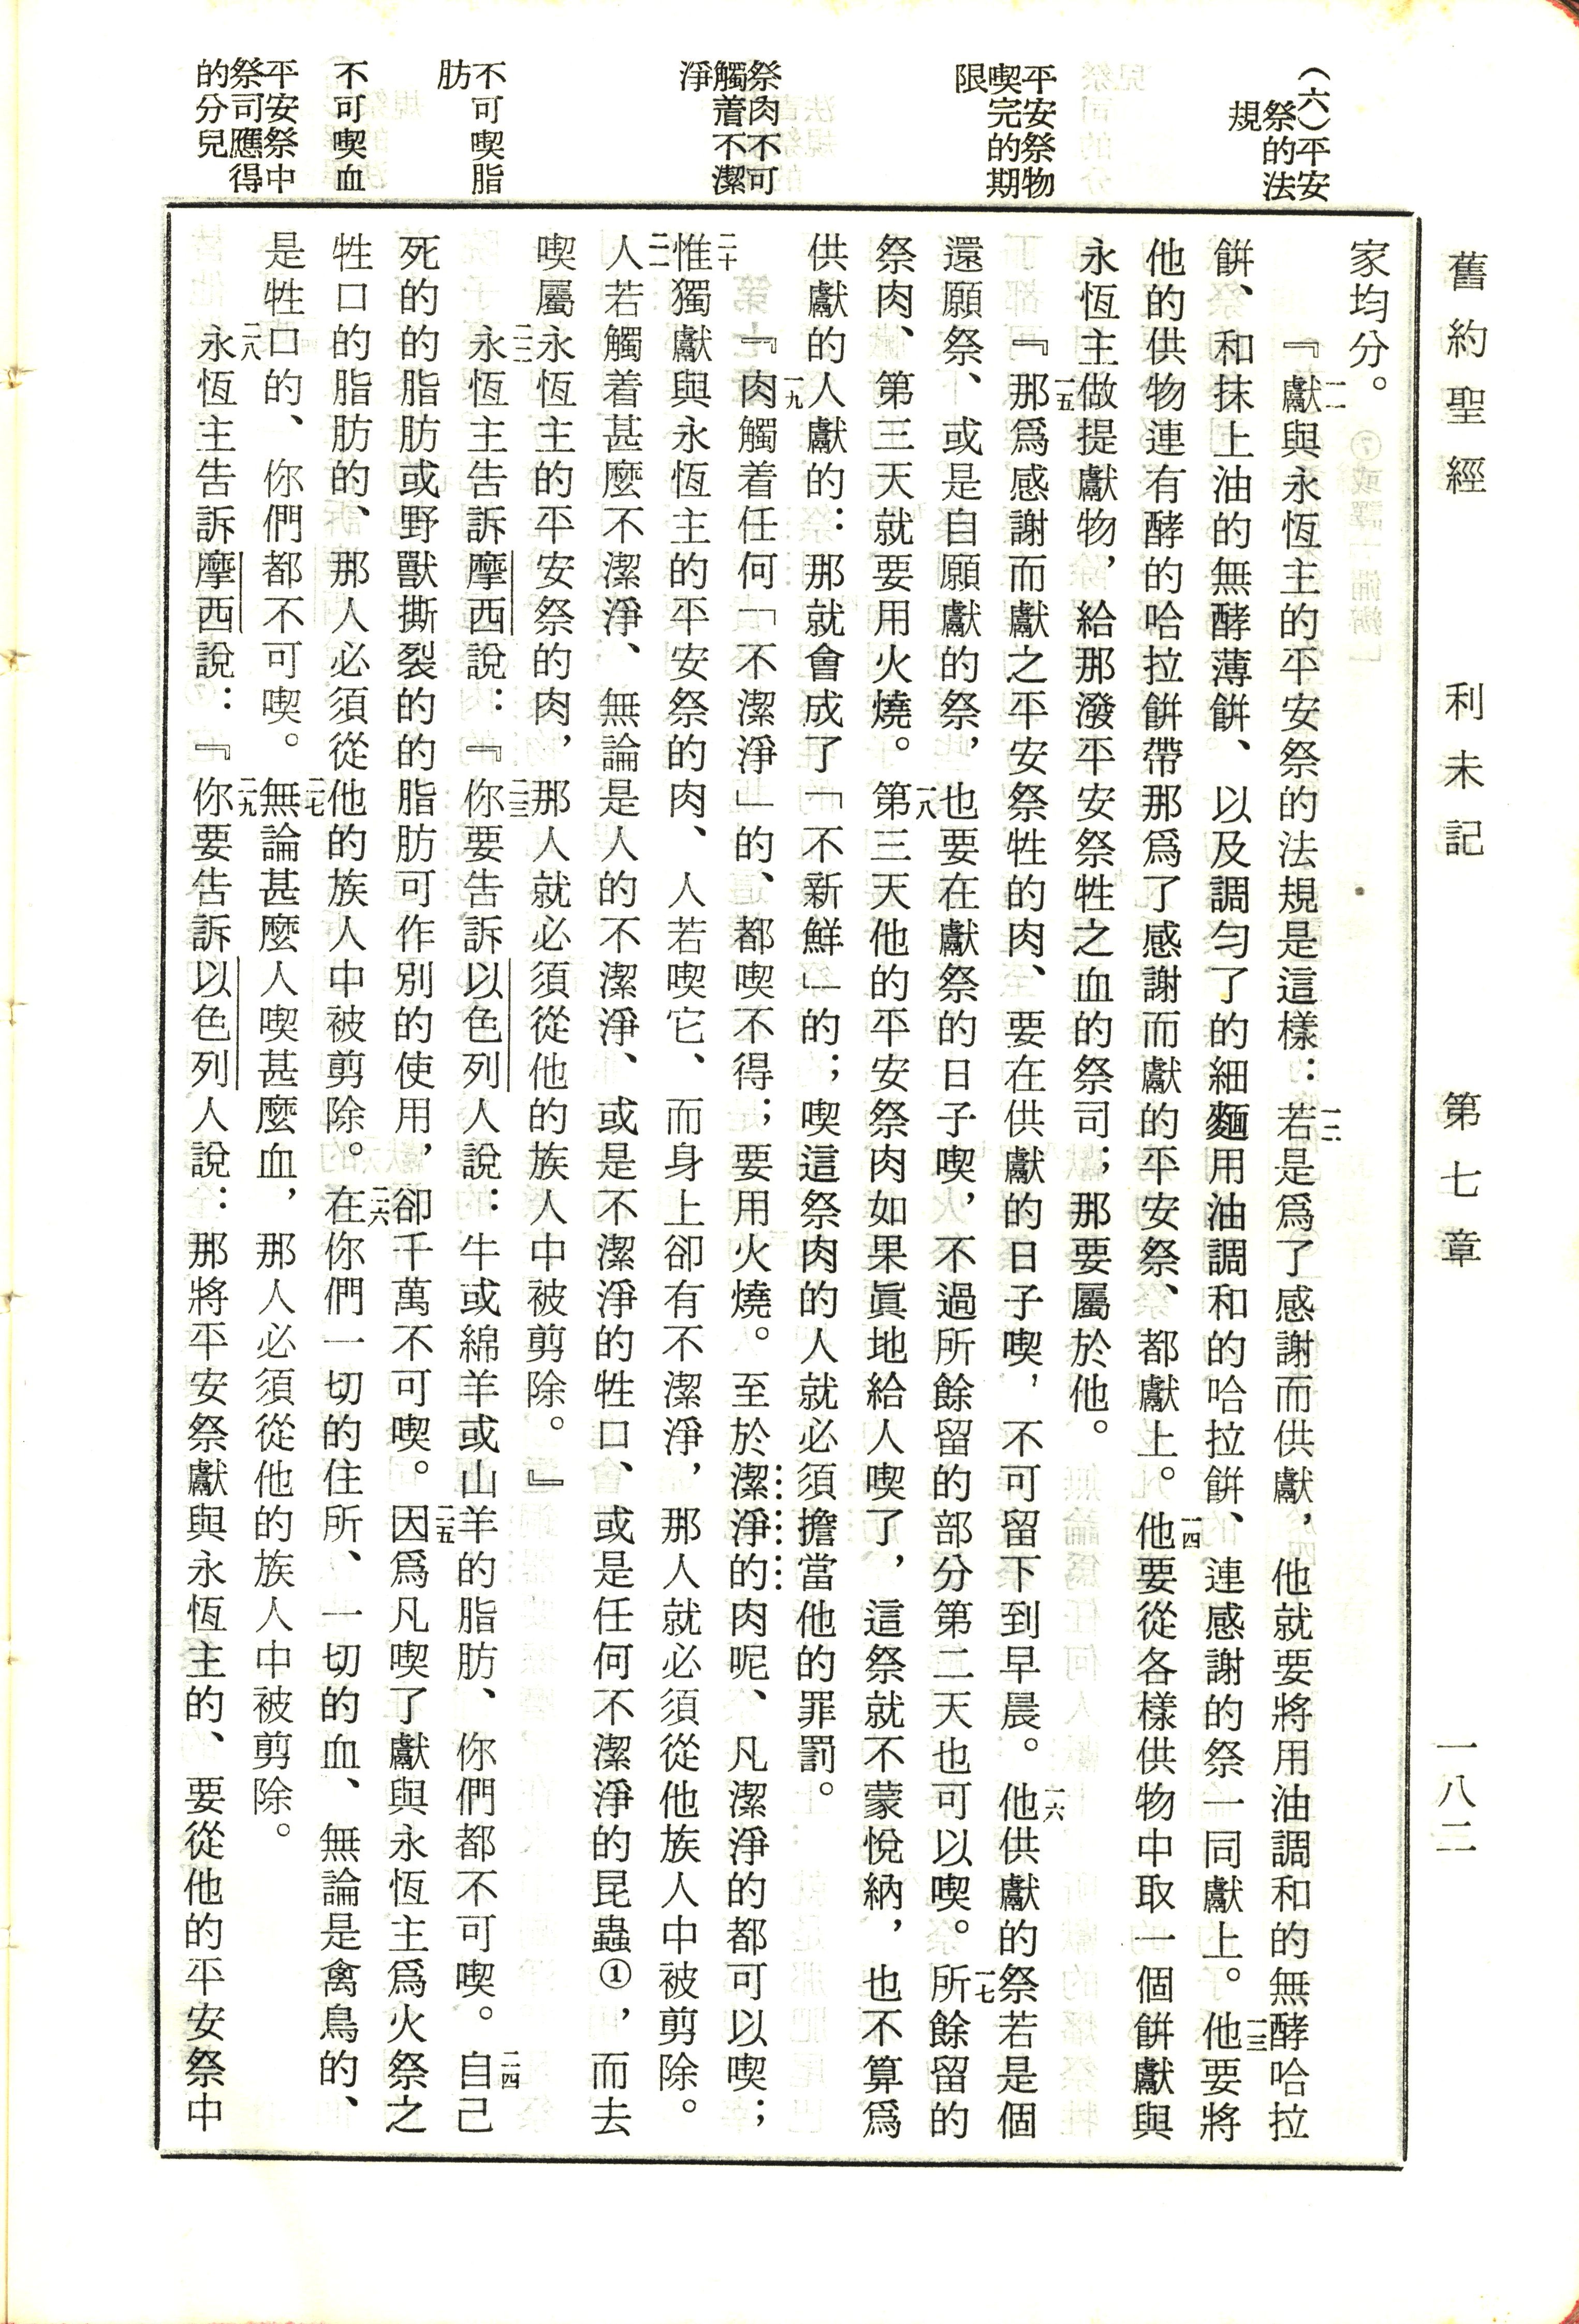 舊約聖經　利未記　第七章　一八二
（六）平安
祭的法
規
平安祭物
喫完的期
限
祭肉不可
觸着不潔
淨
不可喫脂
肪
不可喫血
平安祭中
祭司應得
的分兒
家均分。
一一『獻與永恆主的平安祭的法規是這樣：一二若是爲了感謝而供獻，他就要將用油調和的無酵哈拉
餅、和抹上油的無酵薄餅、以及調勻了的細麵用油調和的哈拉餅、連感謝的祭一同獻上。一三他要將
他的供物連有酵的哈拉餅帶那爲了感謝而獻的平安祭、都獻上。一四他要從各樣供物中取一個餅獻與
永恆主做提獻物，給那潑平安祭牲之血的祭司；那要屬於他。
一五『那爲感謝而獻之平安祭牲的肉、要在供獻的日子喫，不可留下到早晨。一六他供獻的祭若是個
還願祭、或是自願獻的祭，也要在獻祭的日子喫，不過所餘留的部分第二天也可以喫。一七所餘留的
祭肉、第三天就要用火燒。一八第三天他的平安祭肉如果眞地給人喫了，這祭就不蒙悅納，也不算爲
供獻的人獻的：那就會成了「不新鮮」的；喫這祭肉的人就必須擔當他的罪罰。
一九『肉觸着任何「不潔淨」的、都喫不得；要用火燒。至於潔淨的肉呢、凡潔淨的都可以喫；
二十惟獨獻與永恆主的平安祭的肉、人若喫它、而身上卻有不潔淨，那人就必須從他族人中被剪除。
二一人若觸着甚麼不潔淨、無論是人的不潔淨、或是不潔淨的牲口、或是任何不潔淨的昆蟲①，而去
喫屬永恆主的平安祭的肉，那人就必須從他的族人中被剪除。』
二二永恆主告訴摩西說：二三『你要告訴以色列人說：牛或綿羊或山羊的脂肪、你們都不可喫。二四自己
死的的脂肪或野獸撕裂的的脂肪可作別的使用，卻千萬不可喫。二五因爲凡喫了獻與永恆主爲火祭之
牲口的脂肪的、那人必須從他的族人中被剪除。二六在你們一切的住所、一切的血、無論是禽鳥的、
是牲口的、你們都不可喫。二七無論甚麼人喫甚麼血，那人必須從他的族人中被剪除。
二八永恆主告訴摩西說：二九『你要告訴以色列人說：那將平安祭獻與永恆主的、要從他的平安祭中